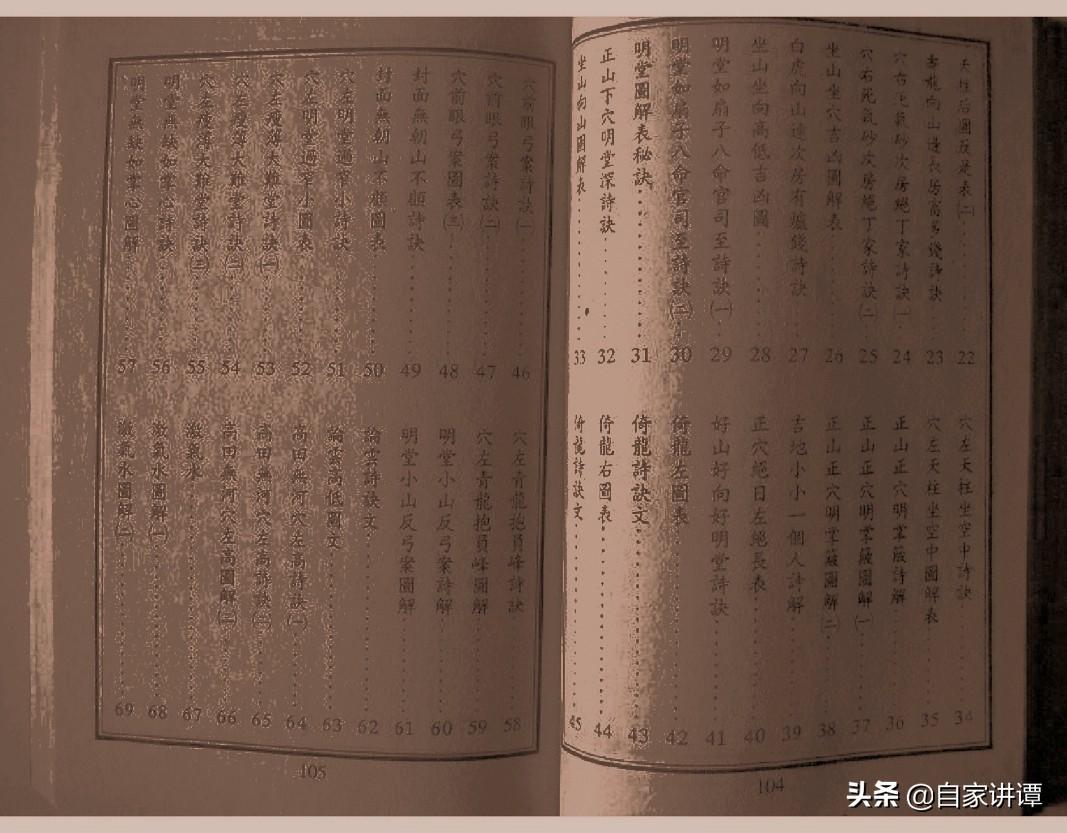 天柱后圖反是表(二)……22
青龍向山邊長房富多錢詩訣 23
穴右死氣砂次房絕丁家詩訣(一)……24
穴右死氣砂次房絕丁家詩訣(二)……25
坐山坐穴吉凶圖解表……26
白虎向山邊次房有爐錢詩訣 27
坐山坐向高低吉凶圖……28
明堂如扇子八命官司至詩訣(一)……29
明堂如扇子八命官司至詩訣(二)……30
明堂圖解表秘訣……31
正山下穴明堂深詩訣……32
坐山向山圖解表……33
穴左天柱坐空中詩訣……34
穴左天柱坐空中圖解表……35
正山正穴明堂簸詩解……36
正山正穴明堂簸圖解(一)……37
正山正穴明堂簸圖解(二)……38
吉地小小一個人詩解……39
正穴絕日左絕長表……40
好山好向好明堂詩訣……41
倚龍左圖表……42
倚龍詩訣文……43
倚龍右圖表……44
倚龍詩訣文……45
104
穴前眼弓案詩訣(一)……46
穴前眼弓案詩訣(二)……47
穴前眼弓案圖表(三)……48
封面無朝山不顧詩訣……49
封面無朝山不顧圖表……50
穴左明堂過窄小詩訣……51
穴左明堂過窄小圖表……52
穴左瘦薄大難堂詩訣(一)……53
穴左瘦薄大難堂詩訣(二)……54
穴左瘦薄大難堂詩訣(三)……55
明堂無缺如掌心詩訣……56
明堂無缺如掌心圖解……57
穴左青龍抱員峰詩訣……58
穴左青龍抱員峰圖解……59
明堂小山反弓案詩解……60
明堂小山反弓案圖解……61
論雲詩訣文……62
論雲高低圖文……63
高田無河穴左高詩訣(一)……64
高田無河穴左高詩訣(二)……65
高田無河穴左高圖解(三)……66
激氣水……67
激氣水圖解(一)……68
激氣水圖解(二)……69
105
头条 @自家讲谭